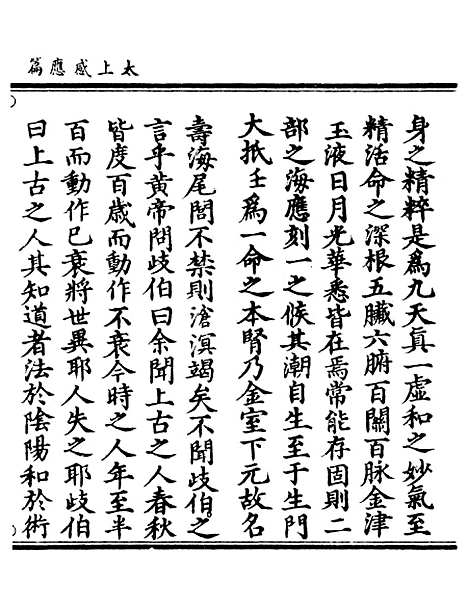 太上感應篇
身之精粹是爲九天真一虛和之妙氣至
精活命之深根五臟六腑百關百脉金津
玉液日月光華悉皆在焉常能存固則二
部之海應刻一之候其潮自生至于生門
大扺壬爲一命之本腎乃金室下元故名
壽海尾閭不禁則滄溟竭矣不聞歧伯之
言乎黃帝問歧伯曰余聞上古之人春秋
皆度百歲而動作不衰今時之人年至半
百而動作已衰將世異耶人失之耶歧伯
曰上古之人其知道者法於陰陽和於術